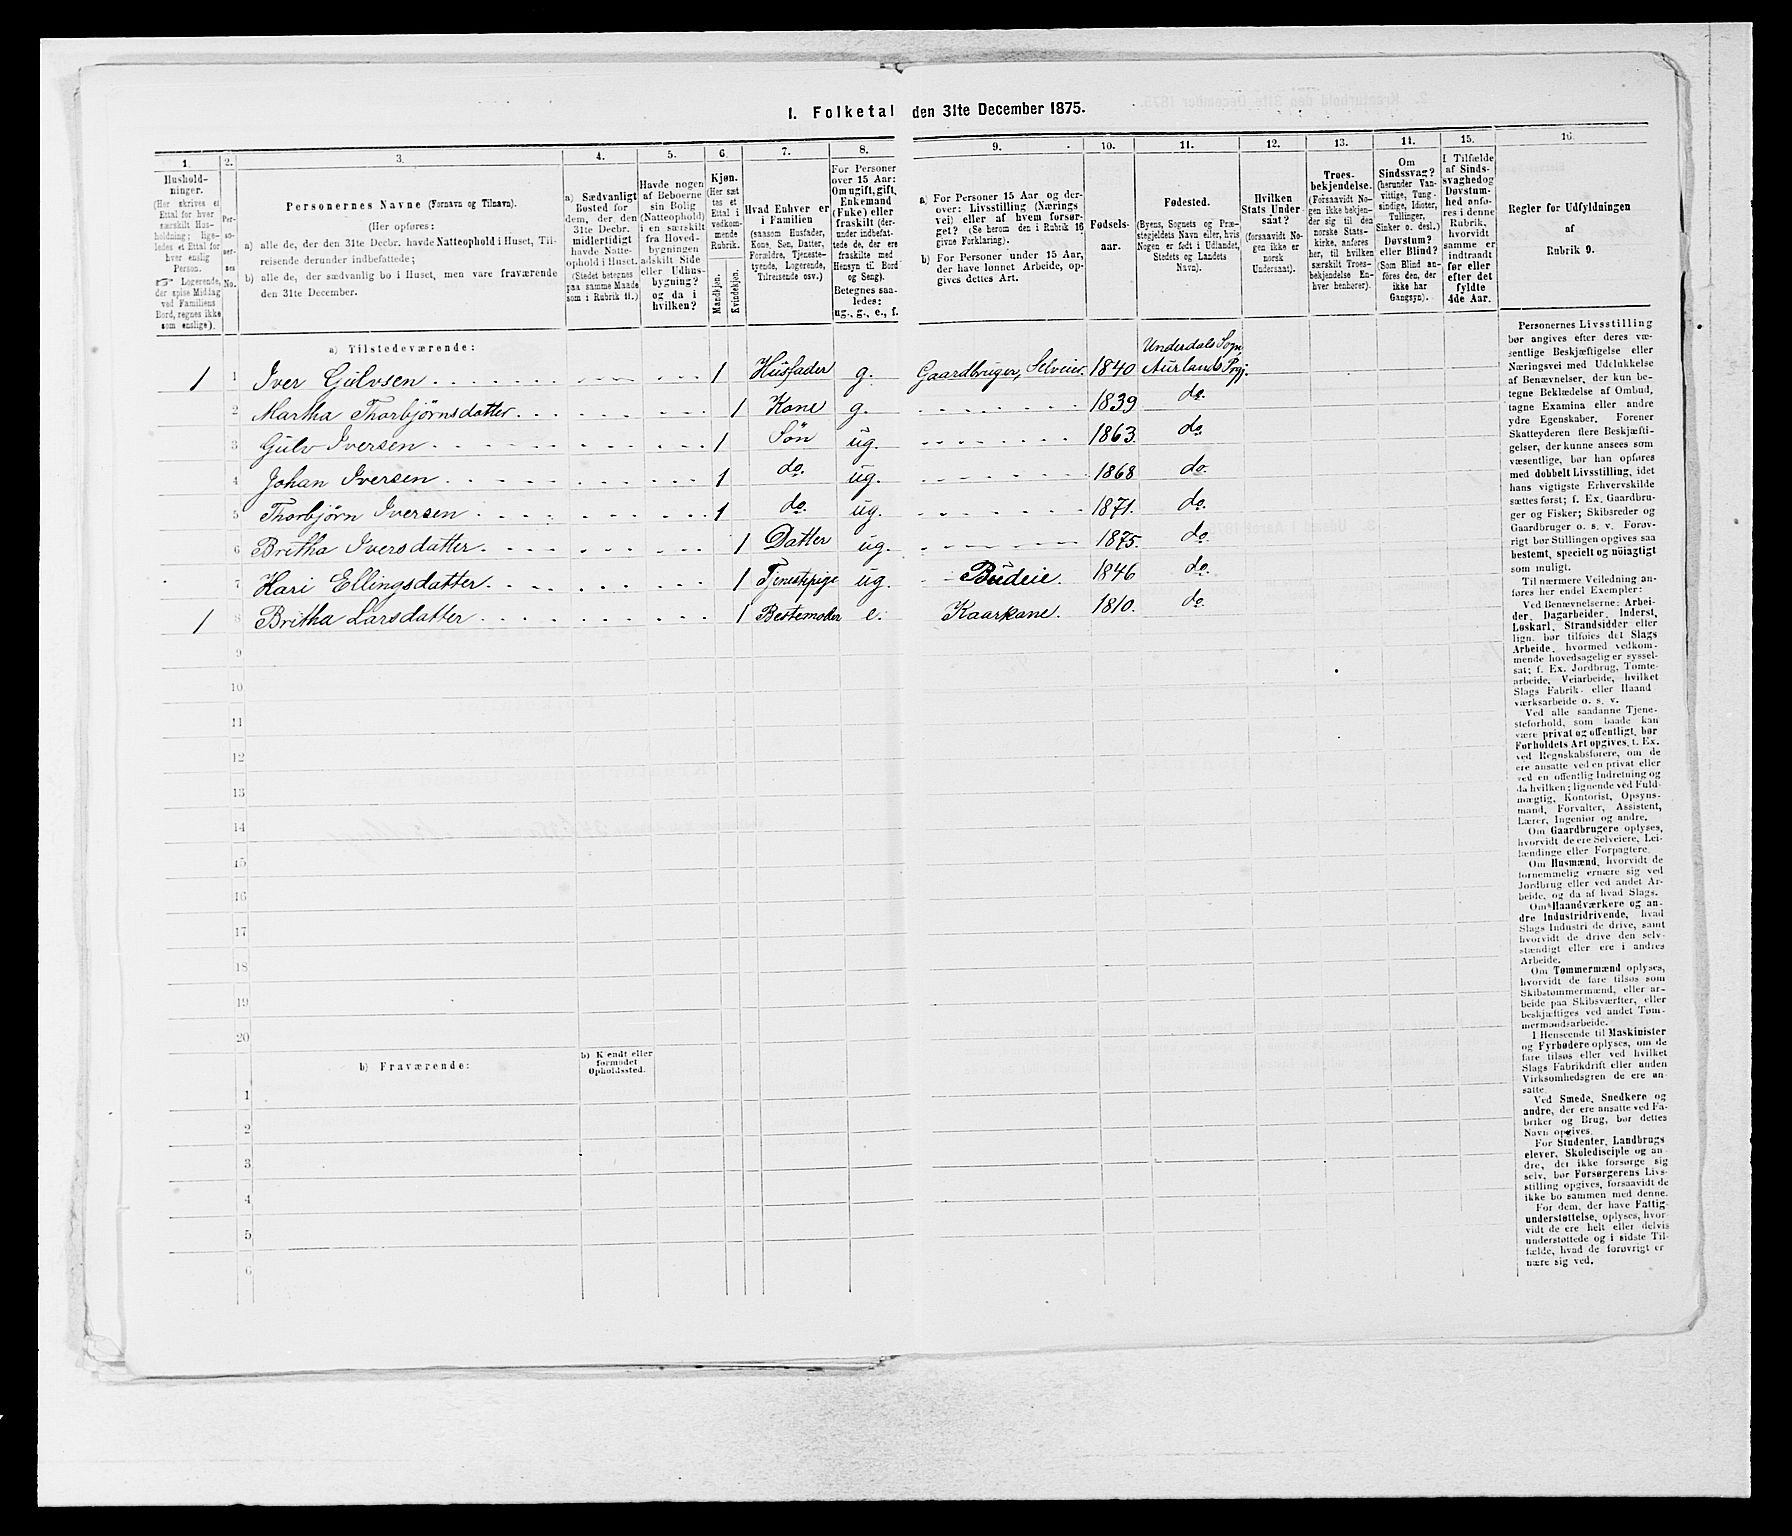 I. Folketal den 31te December 1875.
1. 2. 3. 4. 5. 6. 7. 8. 9. 10. 11. 12. 13. 14. 15. 16.
Husholdninger.
(Her skrives et
Ettal for hver
særskilt Husholdning; ligeledes
et Ettal for
hver enslig
Person.
Logerende,
der spise Middag
ved Familiens
Bord, regnes ikke
som enslige).
Personernes No.
Personernes Navne (Fornavn og Tilnavn).
(Her opføres:
a) alle de, der den 31te Decbr. havde Natteophold i Huset, Tilreisende
derunder indbefattede;
b) alle de, der sædvanlig bo i Huset, men vare fraværende
den 31te December.
a) Sædvanligt
Bosted for
dem, der den
31te Decbr.
midlertidigt
havde Natteophold
i Huset.
(Stedet betegnes
paa samme Maade
som i Rubrik 11.)
Havde nogen
af Beboerne
sin Bolig
(Natteophold)
i en særskilt
fra Hovedbygningen
adskilt Side
eller Udhusbygning?
og da i
hvilken?
Kjøn.
(Her sættes
et
Ettal i
vedkommende
Rubrik.
Mandkjøn.
Kvindekjøn.
Hvad Enhver er
i Familien
(saasom Husfader,
Kone, Søn, Datter,
Forældre, Tjenestetyende,
Logerende,
Tilreisende osv.)
For Personer
over 15 Aar:
Om ugift, gift,
Enkemand
(Enke) eller
fraskilt (derunder
indbefattede
de, der ere
fraskilte med
Hensyn til Bord
og Seng).
Betegnes saaledes:
ug., g., e., f.
a) For Personer 15 Aar og derover:
Livsstilling (Næringsvei)
eller af hvem forsørget?
(Se herom den i Rubrik 16
givne Forklaring).
b) For Personer under 15 Aar,
der have lønnet Arbeide, opgives
dettes Art.
Fødselsaar.
Fødested.
(Byens, Sognets og Præstegjeldets
Navn eller, hvis
Nogen er født i Udlandet,
Stedets og Landets
Navn).
Hvilken
Stats Undersaat?
(forsaavidt Nogen
ikke er
norsk
Undersaat).
Troesbekjendelse.
(Forsaavidt Nogen
ikke bekjender
sig til den
norske Statskirke,
anføres
her, til hvilken
særskilt Troesbekjendelse
Enhver
henhører).
Om
Sindssvag?
(herunder Vanvittige,
Tungsindige,
Idioter,
Tullinger,
Sinker o. desl.)
Døvstum?
eller Blind?
(Som Blind anføres
den, der
ikke har
Gangsyn).
I Tilfælde
af Sindssvaghed
og
Døvstumhed
anføres
i denne
Rubrik,
hvorvidt
samme er
indtraadt
før eller
efter det
fyldte
4de Aar.
Regler for Udfyldningen
af
Rubrik 9.
a) Tilstedeværende:
1 1 Iver Gulvsen 1 Husfader g. Gaardbruger, Selveier. 1840 Underdals Sogn, Aurlands Prgj.
2 Martha Thorbjørnsdatter 1 Kone g. 1839 do.
3 Gulv Iversen 1 Søn ug. 1863. do
4 Johan Iversen 1 do. ug. 1868 do.
5 Thorbjørn Iversen 1 do. ug. 1871. do.
6 Britha Iversdatter. 1 Datter ug. 1875. do.
7 Kari Ellingsdatter. 1 Tjenestepige ug. Budeie. 1846 do.
1 8 Britha Larsdatter 1 Bestemoder e. Kaarkone. 1810. do.
9
10
11
12
13
14
15
16
17
18
19
20
b) Fraværende:
b) Kjendt eller
formodet
Opholdssted.
1
2
3
4
5
6
Personernes Livsstilling
bør angives efter deres væsentlige
Beskjæftigelse eller
Næringsvei med Udelukkelse
af Benævnelser, der kun betegne
Beklædelse af Ombud,
tagne Examina eller andre
ydre Egenskaber. Forener
Skatteyderen flere Beskjæftigelser,
der kunne ansees som
væsentlige, bør han opføres
med dobbelt Livsstilling, idet
hans vigtigste Erhvervskilde
sættes først; f. Ex. Gaardbruger
og Fisker; Skibsreder og
Gaardbruger o. s. v. Forøvrigt
bør Stillingen opgives saa
bestemt, specielt og nöiagtigt
som muligt.
Til nærmere Veiledning anføres
her endel Exempler:
Ved Benævnelserne: Arbeider,
Dagarbeider, Inderst,
Løskarl, Strandsidder eller
lign. bør tilføies det Slags
Arbeide, hvormed vedkommende
hovedsagelig er sysselsat;
f. Ex. Jordbrug, Tømtearbeide,
Veiarbeide, hvilket
Slags Fabrik- eller Haandværksarbeide
o. s. v.
Ved alle saadanne Tjenesteforhold,
som baade kan
være privat og offentligt, bør
Forholdets Art opgives, f. Ex.
ved Regnskabsførere, om de
ere ansatte ved en privat eller
ved en offentlig Indretning og
da hvilken; lignende ved Fuldmægtig,
Kontorist, Opsynsmand,
Forvalter, Assistent,
Lærer, Ingeniør og andre.
Om Gaardbrugere oplyses,
hvorvidt de ere Selveiere, Leilændinge
eller Forpagtere.
Om Husmænd, hvorvidt de
fornemmelig ernære sig ved
Jordbrug eller ved andet Arbeide,
og da af hvad Slags.
Om Haandværkere og andre
Industridrivende, hvad
Slags Industri de drive, samt
hvorvidt de drive den selvstændigt
eller ere i andres
Arbeide.
Om Tømmermænd oplyses,
hvorvidt de fare tilsøs som
Skibstømmermænd, eller arbeide
paa Skibsværfter, eller
beskjæftiges ved andet Tømmermandsarbeide.
I Henseende til Maskinister
og Fyrbødere oplyses, om de
fare tilsøs eller ved hvilket
Slags Fabrikdrift eller anden
Virksomhedsgren de ere ansatte.
Ved Smede, Snedkere og
andre, der ere ansatte ved Fabriker
og Brug, bør dettes
Navn opgives.
For Studenter, Landbrugselever,
Skoledisciple og andre,
der ikke forsørge sig
selv, bør Forsørgerens Livsstilling
opgives, forsaavidt de
ikke bo sammen med denne.
For dem, der have Fattigunderstøttelse,
oplyses, hvorvidt
de ere helt eller delvis
understøttede og i sidste Tilfælde,
hvad de forøvrigt ernære
sig ved.